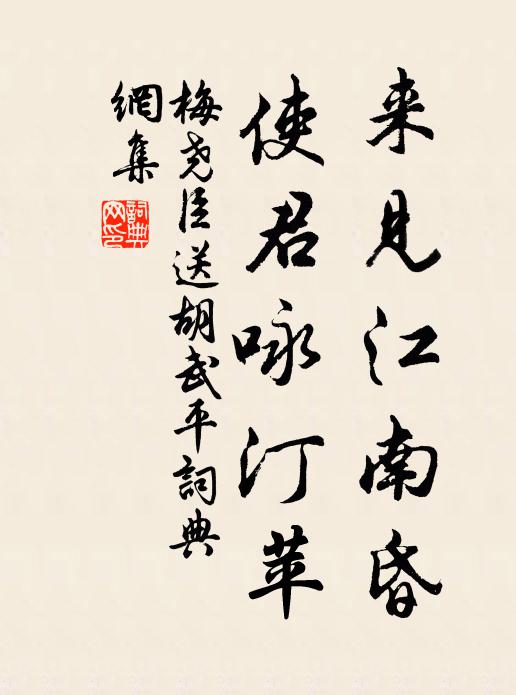 来見江南昏
使君咏汀苹
梅尧臣送胡武平詞典
網集
詞典网印